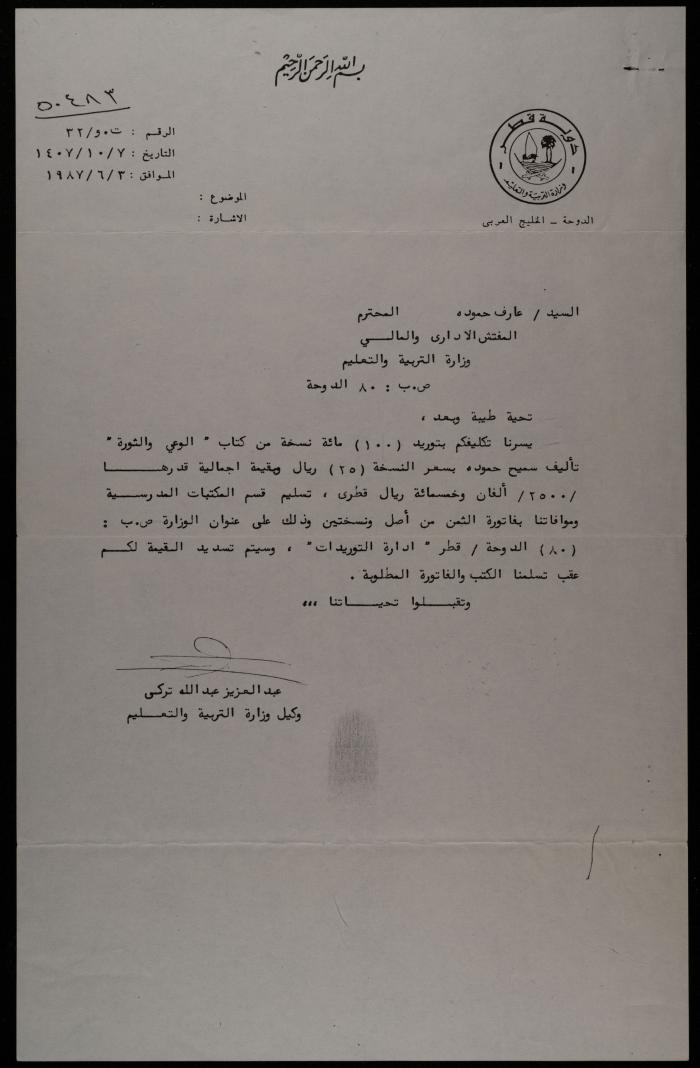 بسم الله الرحمن الرحيم
٥٠٤٨٣
الرقم : ت٠و/٣٢
التاريخ : ١٤٠٧/١٠/٧
الموافق : ١٩٨٧/٦/٣
الموضوع :
الاشارة :
دولة قطر
وزارة التربية والتعليم
الدوحة - الخليج العربى
السيد / عارف حموده المحترم
المفتش الادارى والمالـــي
وزارة التربية والتعليم
ص٠ب : ٨٠ الدوحة
تحية طيبة وبعد ،
يسرنا تكليفكم بتوريد (١٠٠) مائة نسخة من كتاب " الوعي والثورة "
تأليف سميح حموده بسعر النسخة (٢٥) ريال وبقيمة اجمالية قدرهـــــا
/٢٥٠٠/ ألفان وخمسمائة ريال قطرى ، تسليم قسم المكتبات المدرســـية
وموافاتنا بفاتورة الثمن من أصل ونسختين وذلك على عنوان الوزارة ص٠ب :
(٨٠) الدوحة / قطر " ادارة التوريدات " ، وسيتم تسديد القيمة لكـــم
عقب تسلمنا الكتب والفاتورة المطلوبة .
وتقبـــلوا تحيـــاتنا ،،،
عبدالعزيز عبدالله تركى
وكيل وزارة التربية والتعـــليم